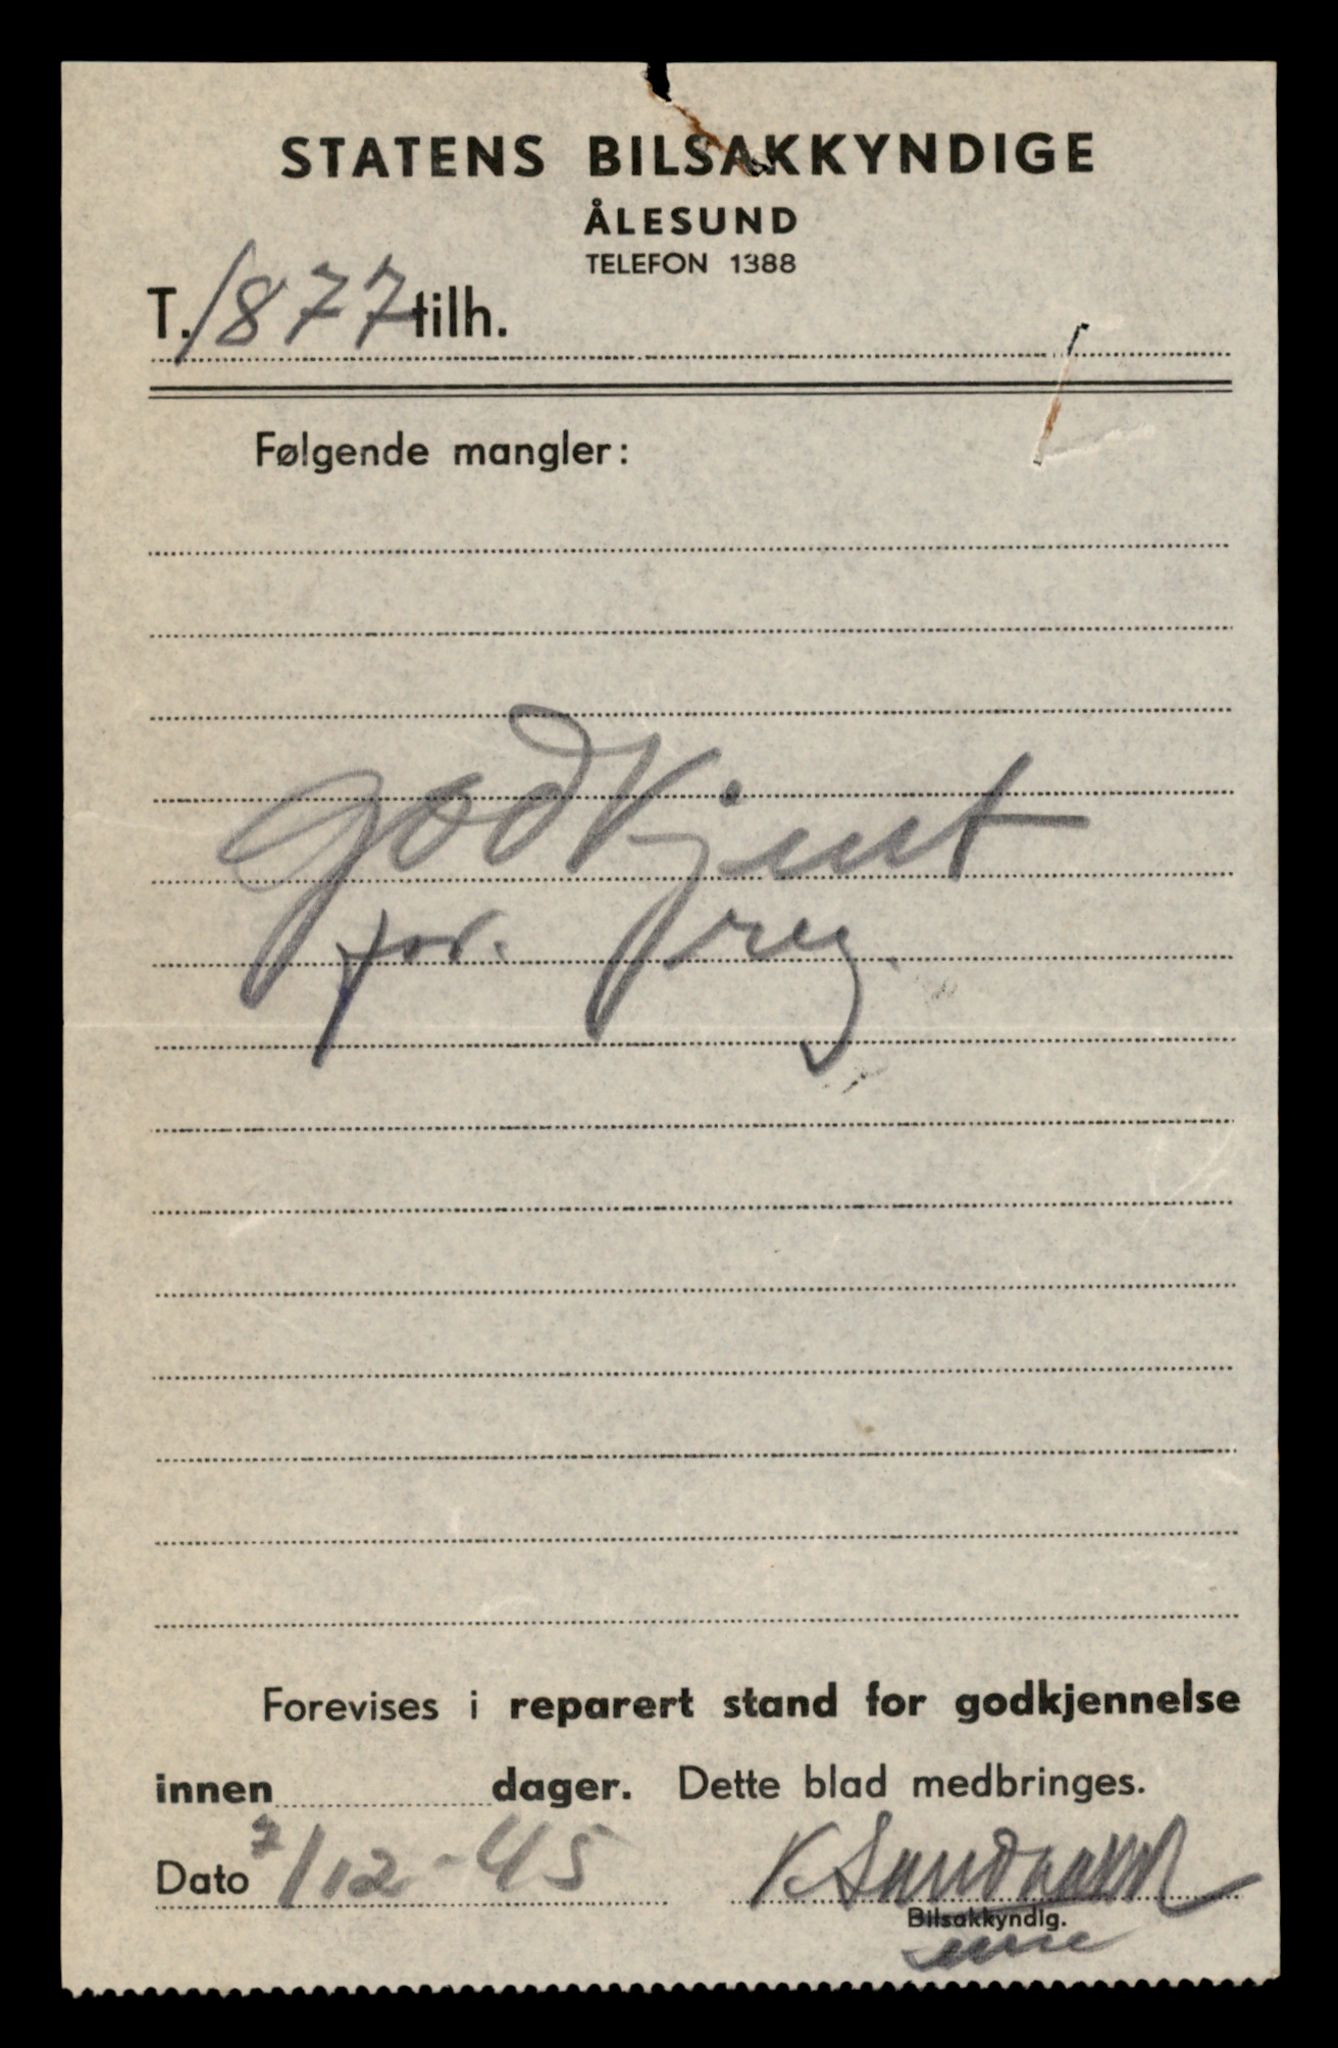 STATENS BILSAKKYNDIGE
ÅLESUND
TELEFON 1388
T. 1877 tilh.
Følgende mangler:
Godkjent
for. reg.
Forevises i reparert stand for godkjennelse
innen dager. Dette blad medbringes.
Dato 7/12-45 K
Bilsakkyndig.